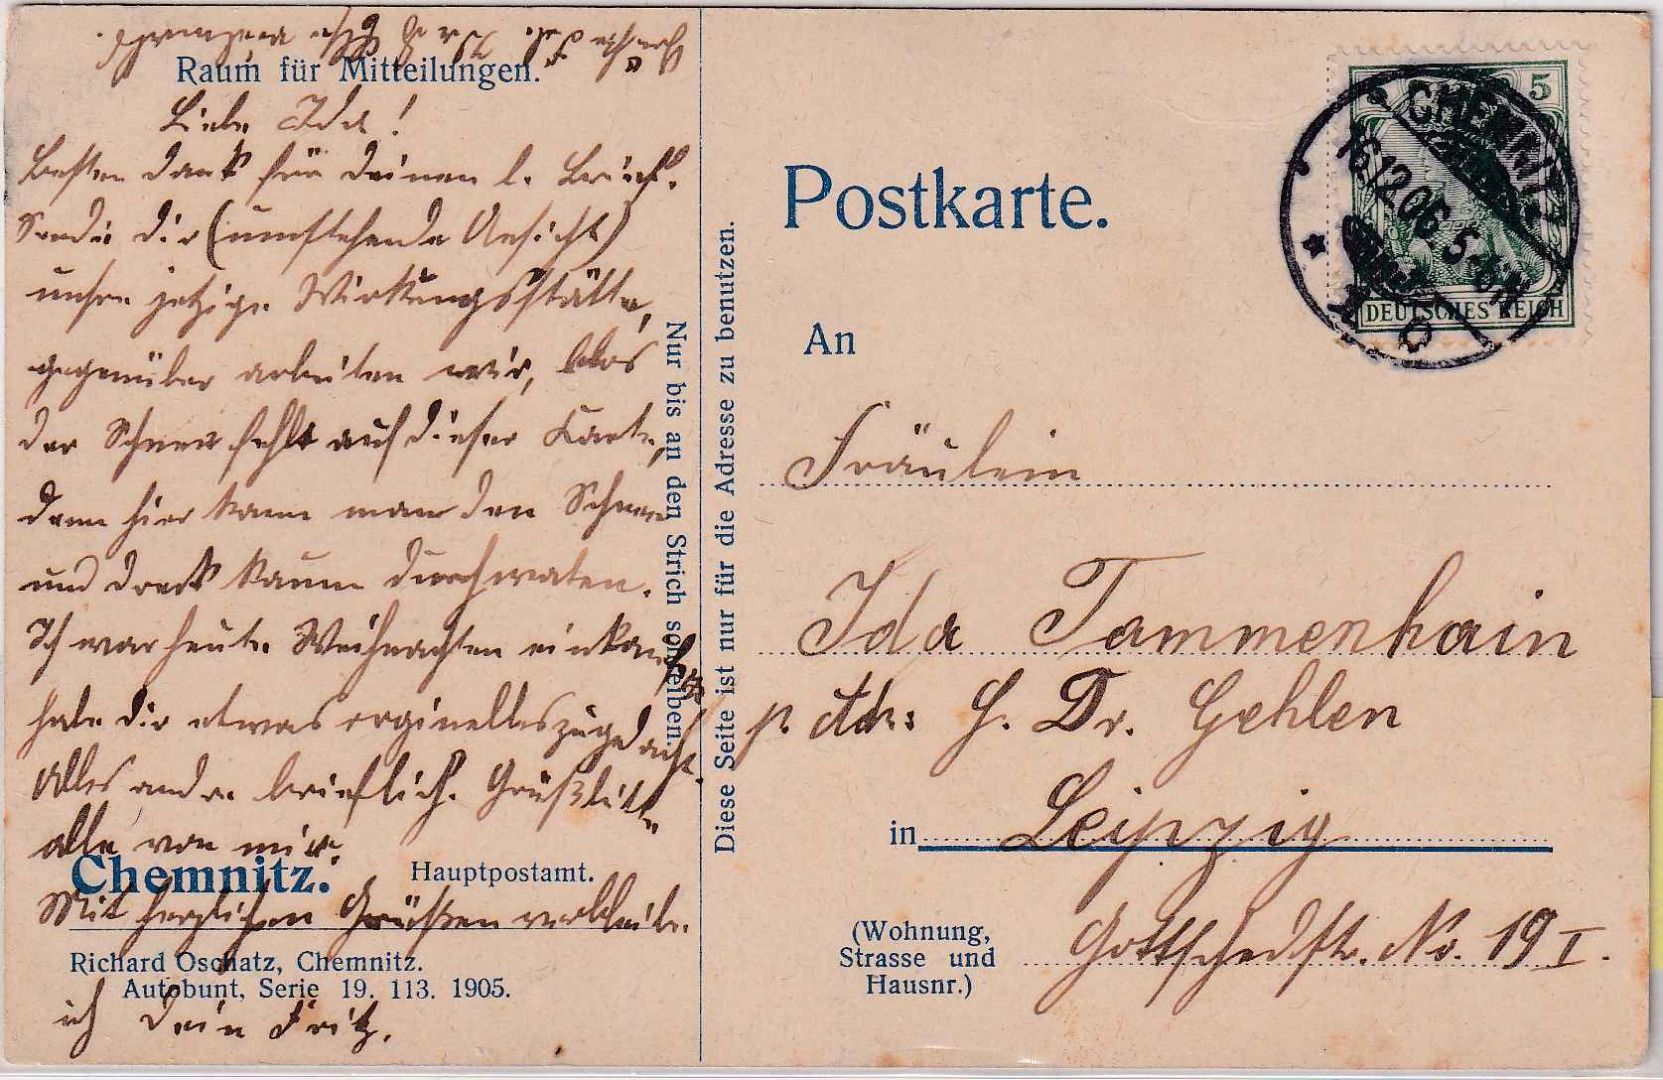 Raum für Mitteilungen.
Liebe Ida!
Besten Dank für Deinen l. Brief.
Sende Dir (umstehende Ansicht)
unsre jetzige Wirkungsstätte,
gegenüber arbeiten wir, blos
der Schnee fehlt auf dieser Karte,
denn hier kann man den Schnee
und Dreck kaum durchwaten.
Ich war heute Weihnachten einkaufen
habe dir etwas orginelles zugedacht.
Alles andre brieflich. Grüße bitte
alle von mir.
Chemnitz. Hauptpostamt.
Mit herzlichen Grüßen verbleibe
Richard Oschatz, Chemnitz.
Autobunt, Serie 19. 113. 1905.
ich Dein Fritz.
Nur bis an den Strich schreiben.
Diese Seite ist nur für die Adresse zu benutzen.
Postkarte.
5
DEUTSCHES REICH
CHEMNITZ
16.12.06. 5-6N
An
Fräulein
Ida Tammenhain
p. Adr: H. Dr. Gehlen
in Leipzig
(Wohnung,
Strasse und
Hausnr.)
Gottschedstr. No. 19 I.